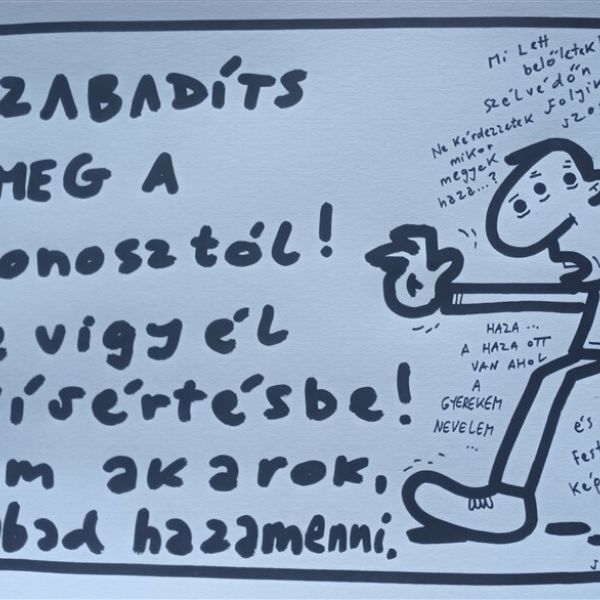 ZABADÍTS
MEG A
onosztól!
vigyél
ísértésbe!
m akarok,
bad hazamenni.
Mi Lett
belőletek
szélvédőn
Folyik
Ne kérdezzetek
mikor
megyek
haza...?
HAZA...
A HAZA OTT
VAN AHOL
A
GYEREKEM
NEVELEM
...
és
Fest
Kép